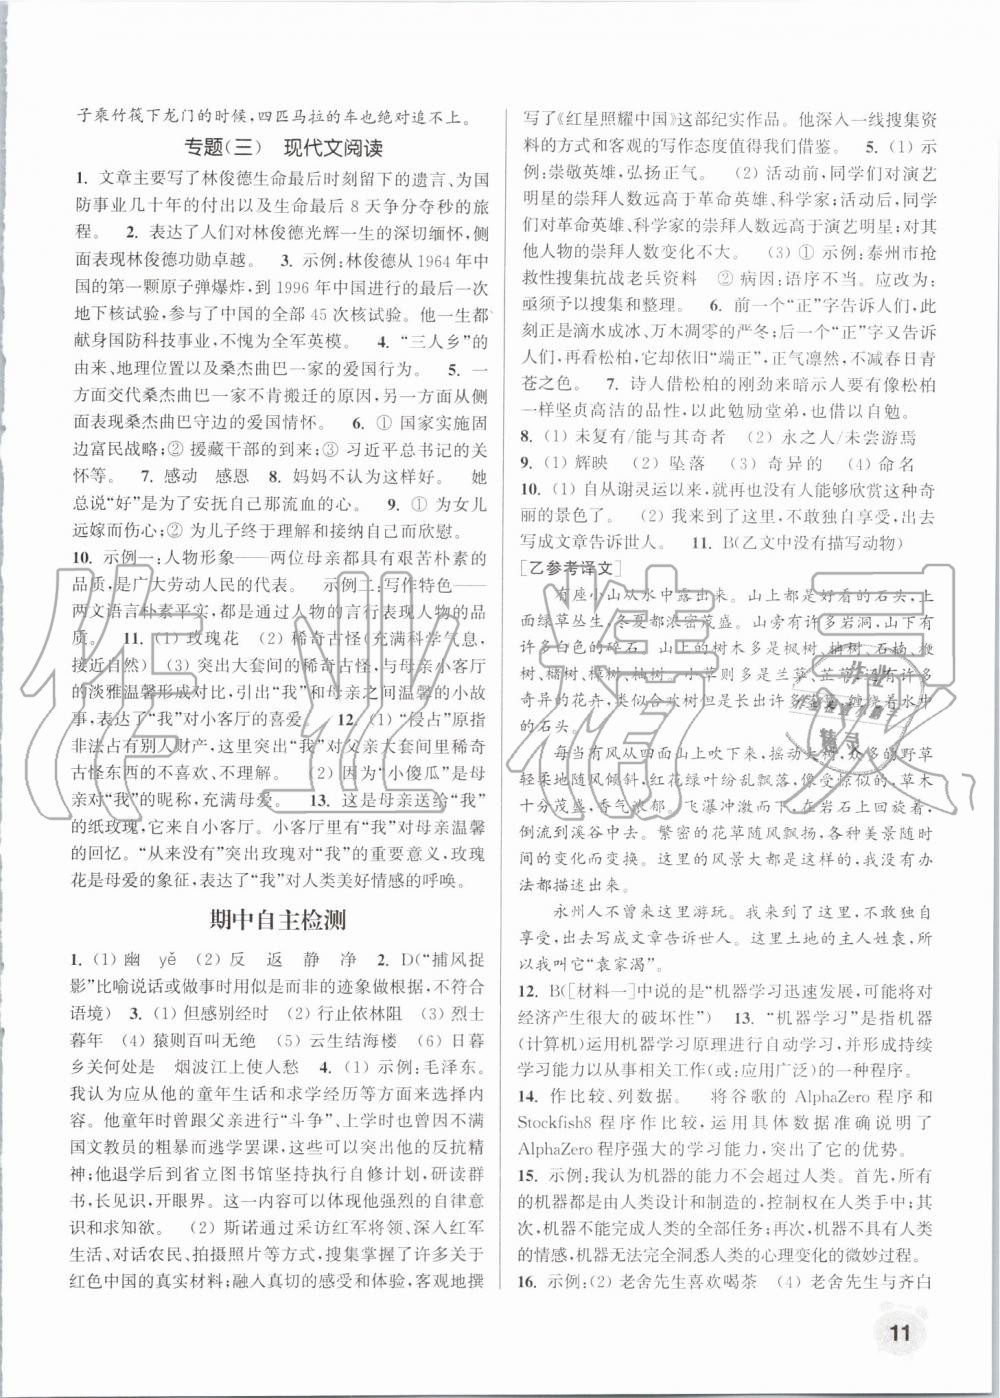 子乘竹筏下龙门的时候，四匹马拉的车也绝对追不上。
专题(三)　现代文阅读
1. 文章主要写了林俊德生命最后时刻留下的遗言、为国
防事业几十年的付出以及生命最后 8 天争分夺秒的旅
程。　2. 表达了人们对林俊德光辉一生的深切缅怀，侧
面表现林俊德功勋卓越。　3. 示例：林俊德从 1964 年中
国的第一颗原子弹爆炸，到 1996 年中国进行的最后一次
地下核试验，参与了中国的全部 45 次核试验。他一生都
献身国防科技事业，不愧为全军英模。　4. “三人乡”的
由来、地理位置以及桑杰曲巴一家的爱国行为。　5. 一
方面交代桑杰曲巴一家不肯搬迁的原因，另一方面突出
表现桑杰曲巴守边的爱国情怀。　6. ① 国家实施固
边富民战略；② 援藏干部的到来；③ 习近平总书记的关
怀等。　7. 感动　感恩　8. 妈妈不认为这样好。　她
总说“好”是为了安抚自己那流血的心。　9. ① 为女儿
远嫁而伤心；② 为儿子终于理解和接纳自己而欣慰。
10. 示例一：人物形象——两位母亲都具有艰苦朴素的品
质，是广大劳动人民的代表。　示例二：写作特色——
两文语言朴素平实，都是通过人物的言行表现人物的品
质。　11. (1) 玫瑰花　(2) 稀奇古怪(充满科学气息，
接近自然)　(3) 突出大套间的稀奇古怪，衬托出小客厅
的淡雅温馨形成对比，引出“我”和母亲之间温馨的对话，
表达了“我”对小客厅的喜爱。　12. (1) “侵占”原指
非法占有别人财产，这里突出“我”对父亲大套间里稀奇
古怪东西的不喜欢、不理解。　(2) 因为“小傻瓜”是母亲
对“我”的昵称，充满母爱。　13. 这是母亲送给“我”
的纸玫瑰，它来自小客厅。小客厅里有“我”对母亲温馨
的回忆。“从来没有”突出玫瑰对“我”的重要意义，玫瑰
花是母爱的象征，表达了“我”对人类美好情感的呼唤。
期中自主检测
1. (1) 幽　yě　(2) 反　返　静　净　2. D(“捕风捉
影”比喻说话或做事时用似是而非的迹象做根据，不符合
语境)　3. (1) 但感别经时　(2) 行止依林阻　(3) 烈士
暮年　(4) 猿则百叫无绝　(5) 云生结海楼　(6) 日暮
乡关何处是　烟波江上使人愁　4. (1) 示例：毛泽东。
我认为可以从他的童年生活和求学经历等方面来介绍
他。他童年时曾跟父亲进行“斗争”、上学时也曾因不满
国文教员的粗暴而逃学罢课，这些可以突出他的反抗精
神；他退学后到省立图书馆坚持执行自修计划，研读群
书，长见识，开眼界。这一内容可以体现他强烈的自律意
识和求知欲。　(2) 斯诺通过采访红军将领、深入红军
生活、对话农民、拍摄照片等方式，搜集掌握了许多关于
红色中国的真实材料；融入真切的感受和体验，客观地撰
写了《红星照耀中国》这部纪实作品。他深入一线搜集资
料的方式和客观的写作态度值得我们借鉴。　5. (1) 示
例：崇敬英雄，弘扬正气。　(2) 活动前，同学们对演艺
明星的崇拜人数远高于革命英雄、科学家；活动后，同学们
对革命英雄、科学家的崇拜人数远超过对演艺明星的，对
其他人物的崇拜人数变化不大。　(3) ① 示例：泰州市抢
救性搜集抗战老兵资料　② 病因：语序不当。应改为：
亟须予以搜集和整理。　6. 前一个“正”字告诉人们，此
刻正是滴水成冰、万木凋零的严冬；后一个“正”字又告诉
人们，再看松柏，它却依旧“端正”，正气凛然，不减春日青
苍之色。　7. 诗人借松柏的刚劲来暗示人要有像松柏
一样坚贞高洁的品性，以此勉励堂弟，也以自勉。
8. (1) 未复有/能与其奇者　(2) 永之人/未尝游焉
9. (1) 辉映　(2) 坠落　(3) 奇异的　(4) 命名
10. (1) 自从谢灵运以来，就再也没有人能够欣赏这种奇
丽的景色了。　(2) 我来到了这里，不敢独自享受，出去
写成文章告诉世人。　11. B(乙文中没有描写动物)
[乙参考译文]
有座小山从水中露出来。山上都是好看的石头，上
面绿草丛生，冬夏都浓密茂盛。山旁有许多岩洞，山下有
许多白色的碎石。山上树木多是枫树、柟树、石楠、楩
树、槠树、樟树、柚树，小草则多是兰草、芷草，还有许多
奇异的花卉，类似合欢树但是长出许多藤蔓，缠绕着水中
的石头。
每当有风从四面山上吹下来，摇动大树，众多的野草
轻轻柔地随风倾斜，红花绿叶纷乱飘落，像受惊似的，草木
十分茂盛，香气浓郁。飞瀑冲击激流，在岩石上回旋着，
倒流到溪谷中去。繁密的花草随风飘扬，各种美景随时
间的变化而变换。这里的风景大都是这样，我没有办
法都描述出来。
永州人不曾来这里游玩。我来到了这里，不敢独自
享受，出去写成文章告诉世人。这里土地的主人姓袁，所
以我叫它“袁家渴”。
12. B([材料一]中说的是“机器学习迅速发展，可能将对
经济产生很大的破坏性”)　13. “机器学习”是指机器
(计算机)运用机器学习原理进行自动学习，并形成持续
学习能力以从事相关工作(或：应用广泛)的一种程序。
14. 作比较、列数据。　将谷歌的 AlphaZero 程序和
Stockfish8 程序作比较，运用具体数据准确说明了
AlphaZero 程序强大的学习能力，突出了它的优势。
15. 示例：我认为机器的能力不会超过人类。首先，所有
的机器都是由人类设计和制造的，控制权在人类手中；其
次，机器不能完成人类的全部任务；再次，机器不具有人类
的情感，机器无法完全洞悉人类的心理变化的微妙过程。
16. 示例：(2) 老舍先生喜欢喝茶　(4) 老舍先生与齐白
11